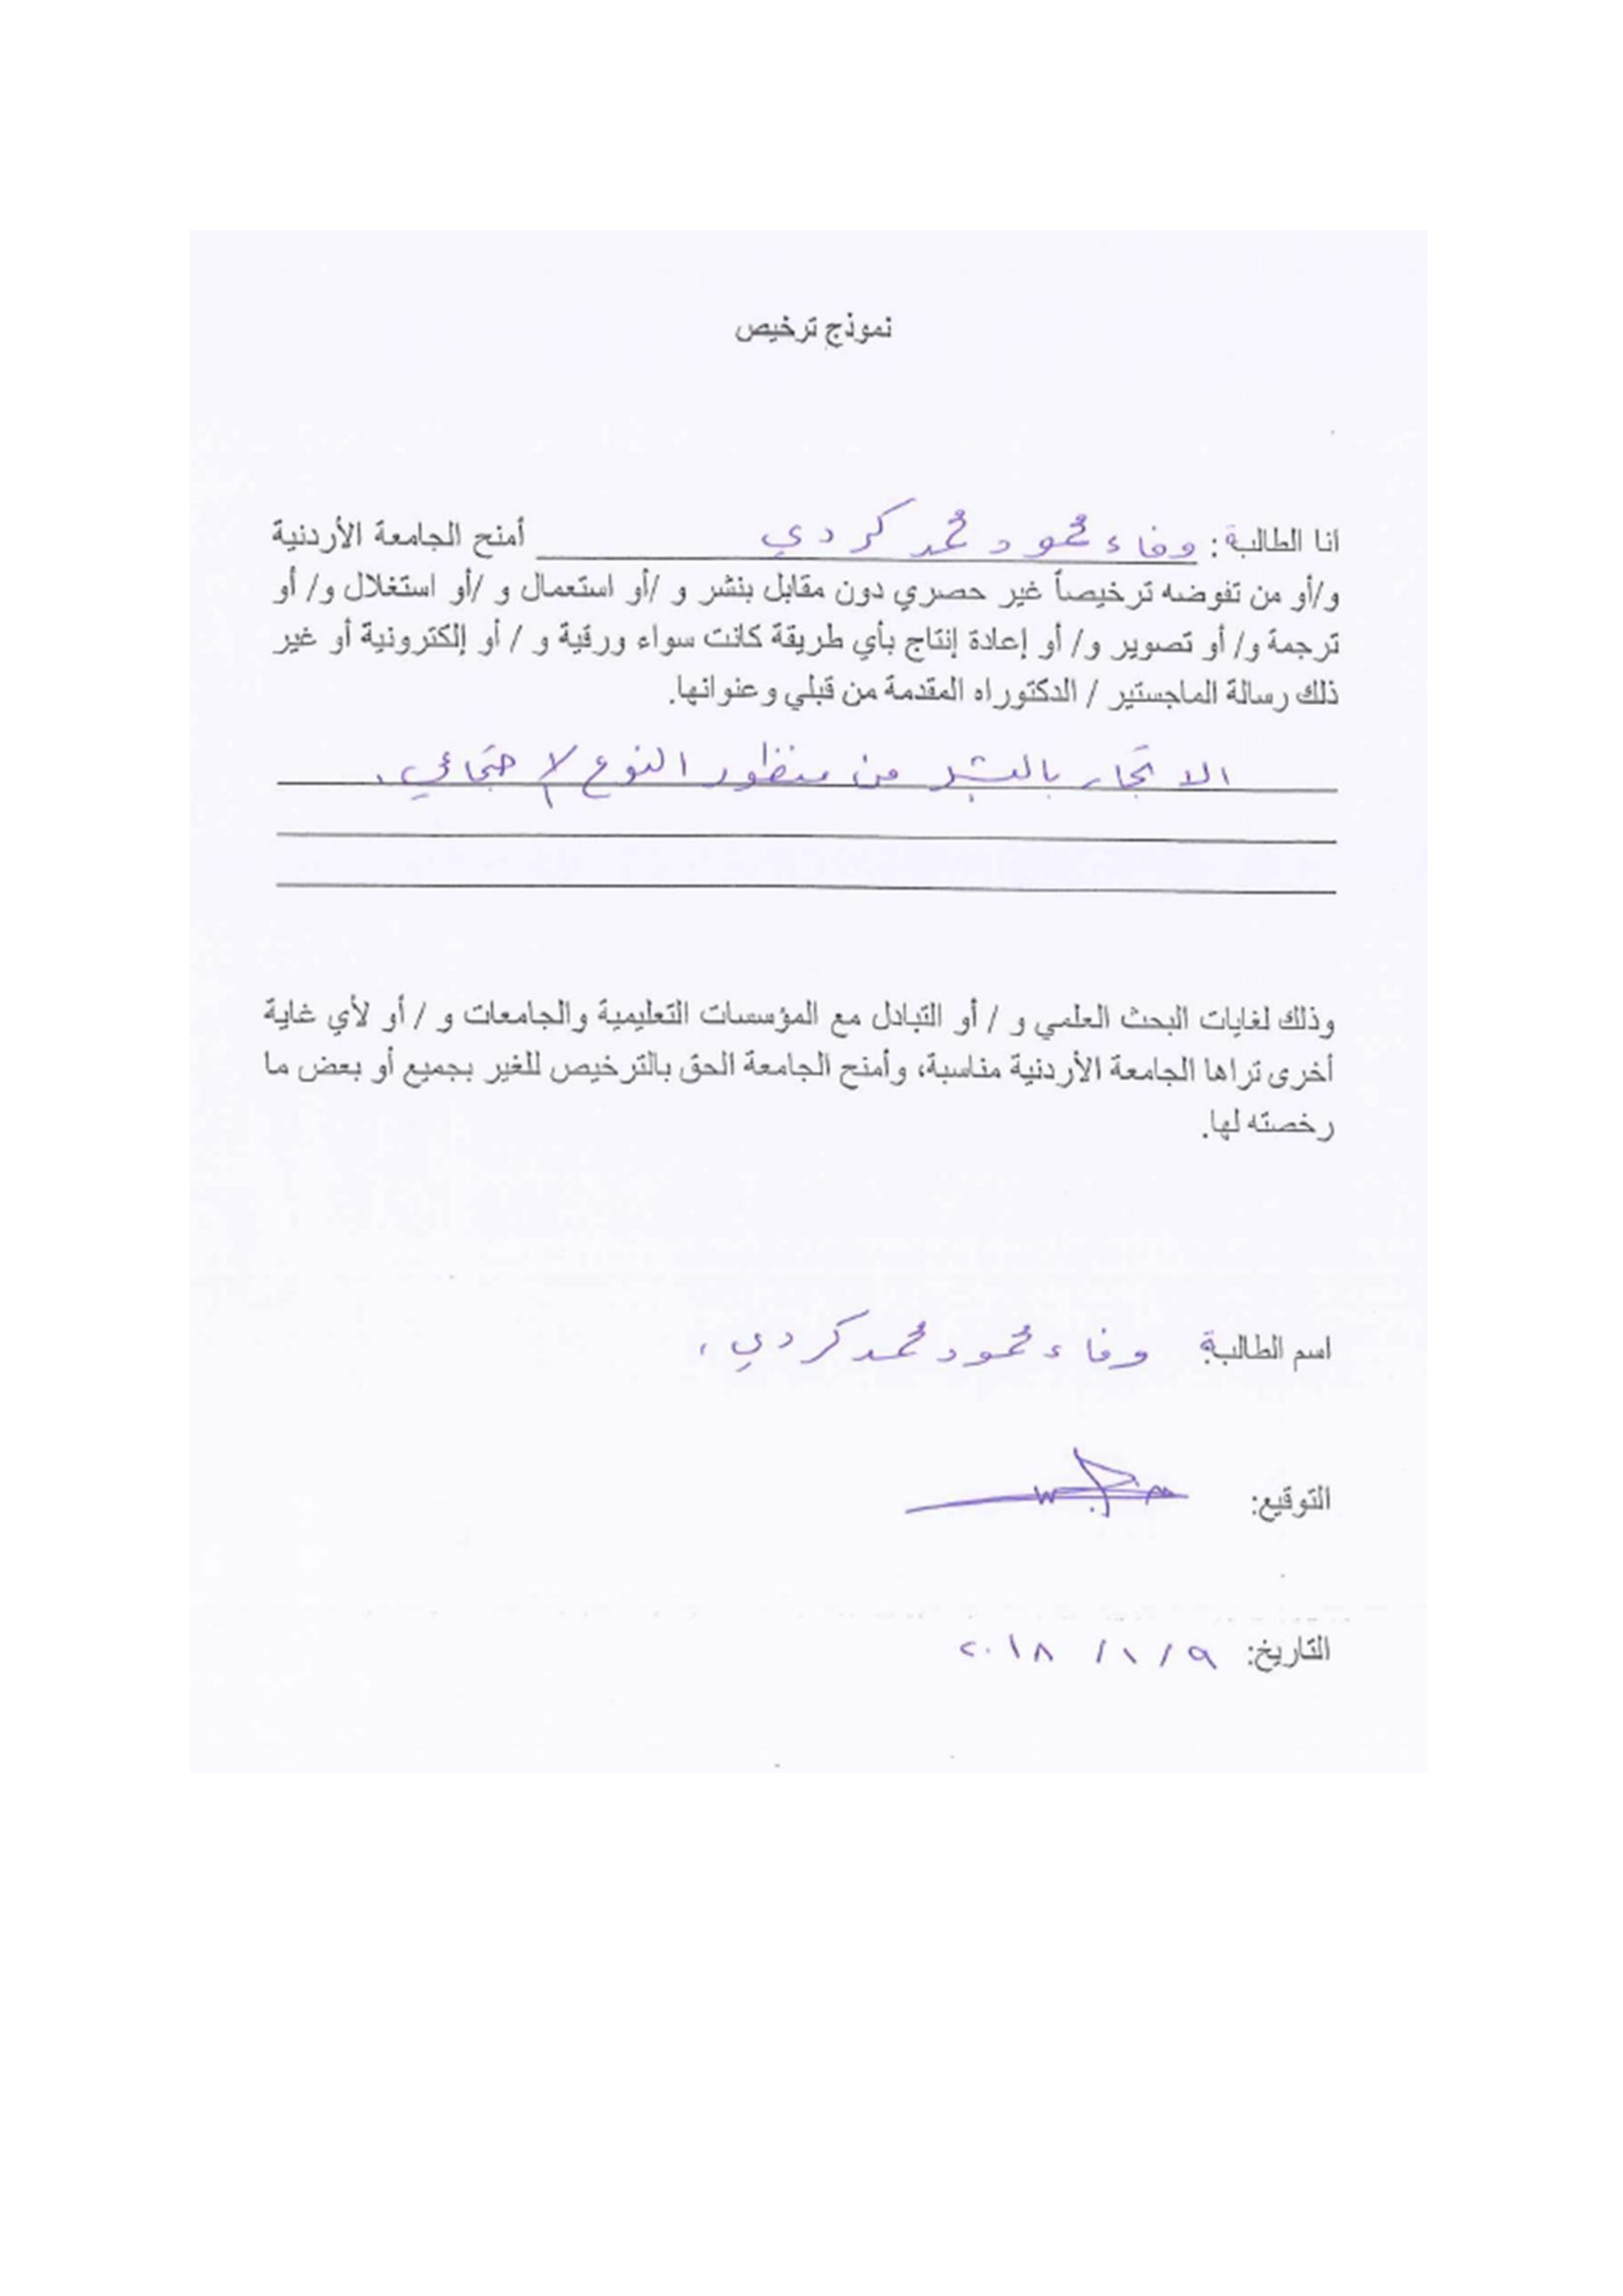 نموذج ترخيص
انا الطالبة : وفاء محمود محمد كردي أمنح الجامعة الأردنية
و/أو من تفوضه ترخيصاً غير حصري دون مقابل بنشر و /أو استعمال و /أو استغلال و/ أو
ترجمة و/ أو تصوير و/ أو إعادة إنتاج بأي طريقة كانت سواء ورقية و / أو إلكترونية أو غير
ذلك رسالة الماجستير / الدكتوراه المقدمة من قبلي وعنوانها.
الاتجار بالبشر من منظور النوع الاجتماعي.
وذلك لغايات البحث العلمي و / أو التبادل مع المؤسسات التعليمية والجامعات و / أو لأي غاية
أخرى تراها الجامعة الأردنية مناسبة، وأمنح الجامعة الحق بالترخيص للغير بجميع أو بعض ما
رخصته لها.
اسم الطالبة: وفاء محمود محمد كردي.
التوقيع:
التاريخ: ٩ / ١ / ٢٠١٨